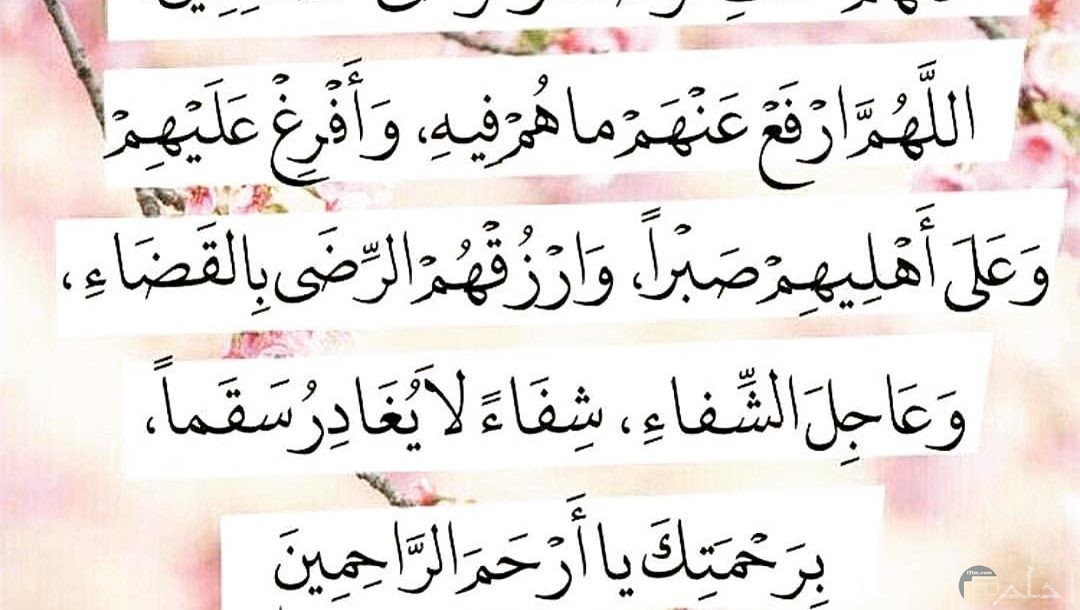 اللَّهُمَّ ارْفَعْ عَنْهَمْ ما هُمْ فِيهِ، وَأَفْرِغْ عَلَيْهِمْ
وَعَلَى أَهْلِيهِمْ صَبْراً، وَارْزُقْهُمْ الرِّضَى بِالقَضَاءِ،
وَعَاجِلَ الشِّفاءِ، شِفَاءً لاَ يُغَادِرُ سَقَماً،
بِرَحْمَتِكَ يا أَرْحَمَ الرَّاحِمِينَ
احلم